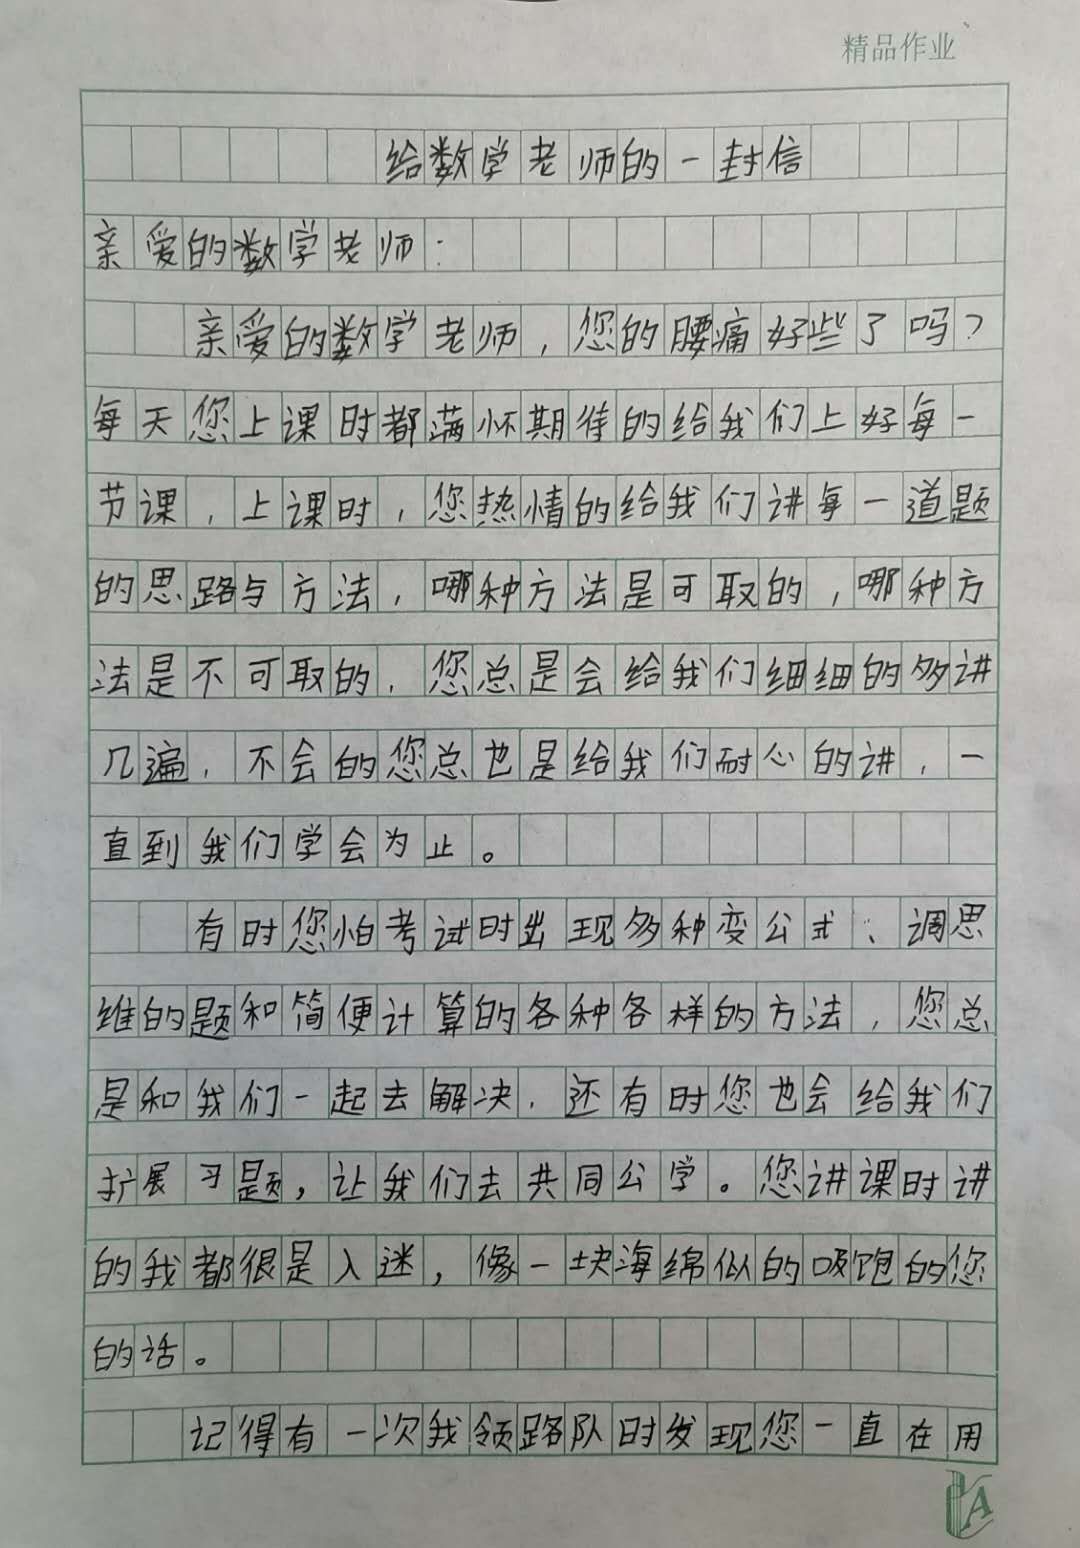 精品作业
给数学老师的一封信
亲爱的数学老师：
亲爱的数学老师，您的腰痛好些了吗？
每天您上课时都满怀期待的给我们上好每一
节课，上课时，您热情的给我们讲每一道题
的思路与方法，哪种方法是可取的，哪种方
法是不可取的，您总是会给我们细细的多讲
几遍，不会的您总也是给我们耐心的讲，一
直到我们学会为止。
有时您怕考试时出现多种变公式、调思
维的题和简便计算的各种各样的方法，您总
是和我们一起去解决，还有时您也会给我们
扩展习题，让我们去共同公学。您讲课时讲
的我都很是入迷，像一块海绵似的吸饱的您
的话。
记得有一次我领路队时发现您一直在用
A